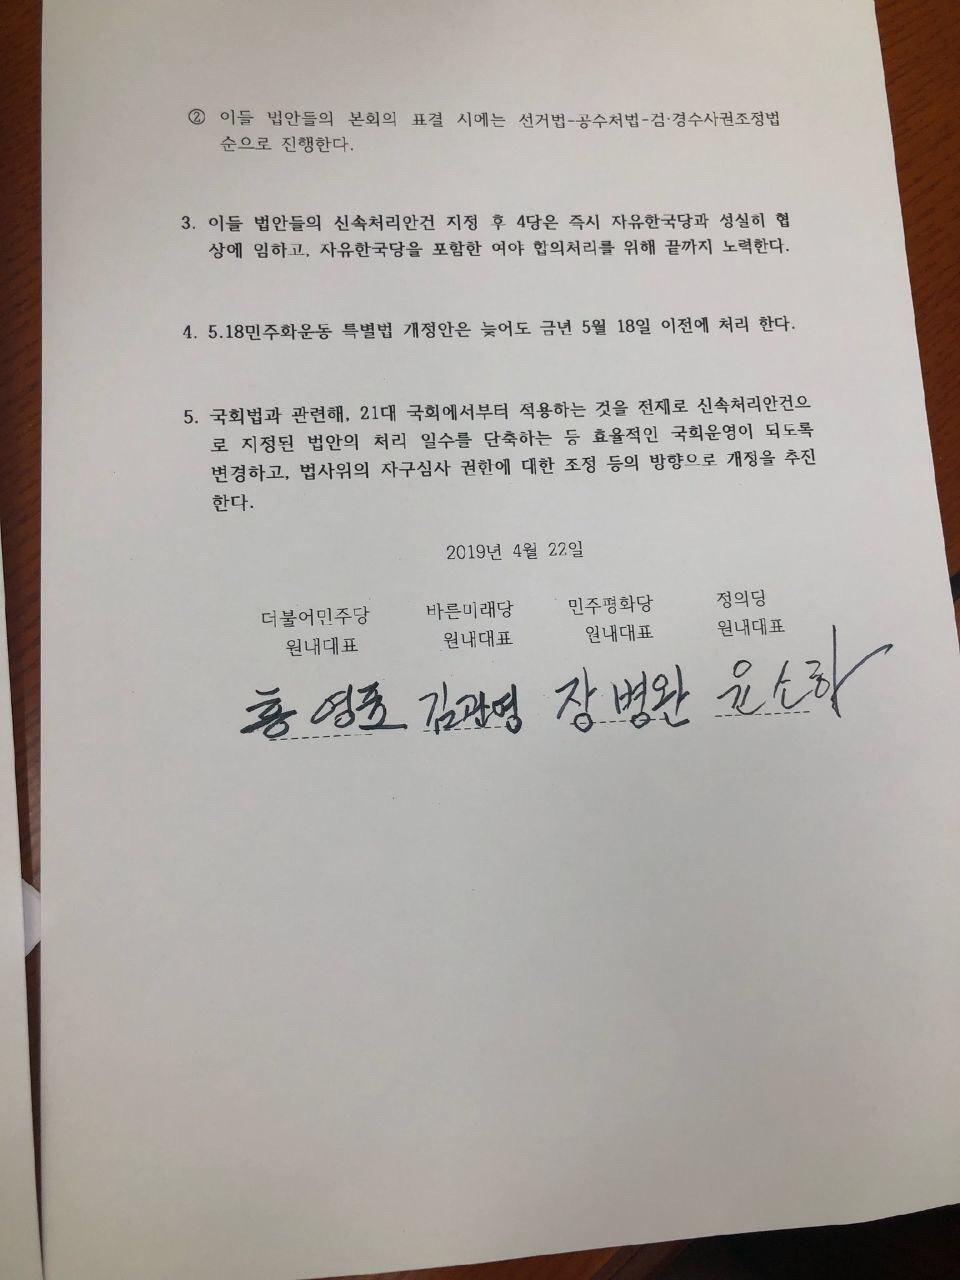 ② 이들 법안들의 본회의 표결 시에는 선거법-공수처법-검·경수사권조정법
순으로 진행한다.
3. 이들 법안들의 신속처리안건 지정 후 4당은 즉시 자유한국당과 성실히 협
상에 임하고, 자유한국당을 포함한 여야 합의처리를 위해 끝까지 노력한다.
4. 5.18민주화운동 특별법 개정안은 늦어도 금년 5월 18일 이전에 처리 한다.
5. 국회법과 관련해, 21대 국회에서부터 적용하는 것을 전제로 신속처리안건으
로 지정된 법안의 처리 일수를 단축하는 등 효율적인 국회운영이 되도록
변경하고, 법사위의 자구심사 권한에 대한 조정 등의 방향으로 개정을 추진
한다.
2019년 4월 22일
더불어민주당 바른미래당 민주평화당 정의당
원내대표 원내대표 원내대표 원내대표
홍영표 김관영 장병완 윤소하